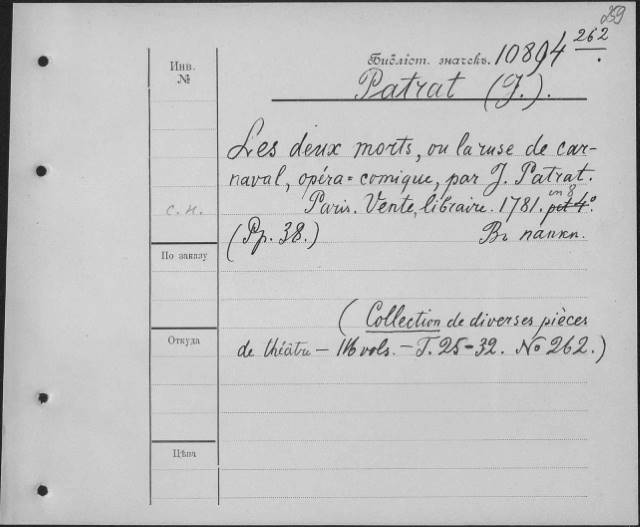 259
Инв. №
Библіот. значекъ. 10894 262
Patrat (J.).
Les deux morts, ou la ruse de car-
naval, opéra=comique, par J. Patrat.
Paris. Vente, libraire. 1781. pet 4º.
in 8
с. н.
(Pp. 38.) Въ папкѣ.
По заказу
(Collection de diverses pièces
de théâtre — 116 vols. — T. 25-32. No 262.)
Откуда
Цѣна